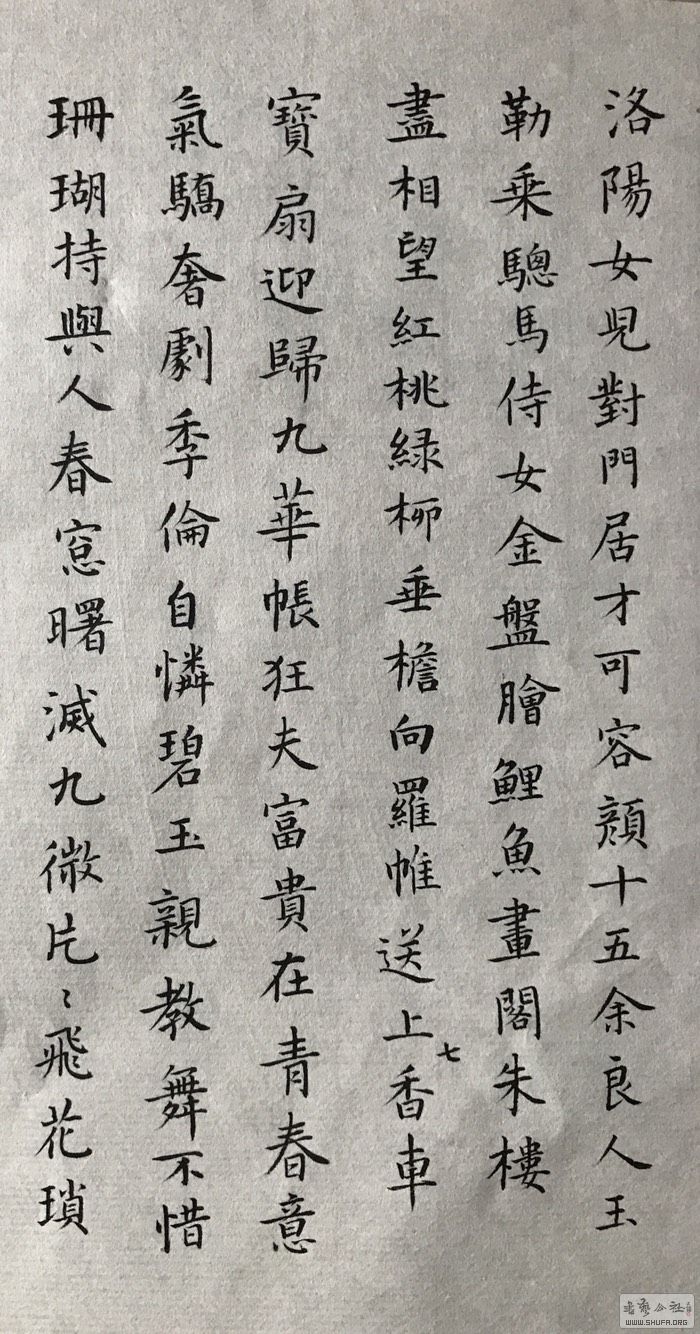 洛陽女兒對門居才可容顏十五余良人玉
勒乘驄馬侍女金盤膾鯉魚畫閣朱樓
盡相望紅桃緑柳垂檐向羅帷送上七香車
寶扇迎歸九華帳狂夫富貴在青春意
氣驕奢劇季倫自憐碧玉親教舞不惜
珊瑚持與人春窓曙滅九微片〻飛花瑣
書藝公社
WWW.SHUFA.ORG